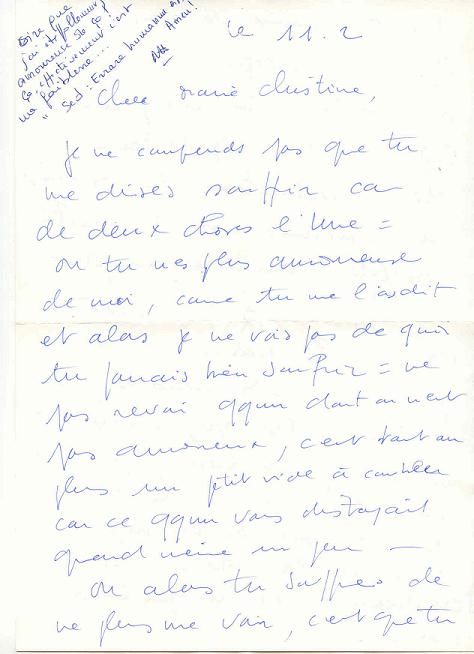 Dire que
j'ai été follement
amoureuse de ça!
ça, effectivement c'est
ma faiblesse...
"sed: Errare humanum est,
Amen!
le 11.2
Chère Marie Christine,
Je ne comprends pas que tu
me dises souffrir car
de deux choses l'une =
ou tu n'es plus amoureuse
de moi, comme tu me l'as dit
et alors je ne vois pas de quoi
tu pourrais bien souffrir = ne
pas revoir qqun dont on n'est
pas amoureux, c'est tout au
plus un petit vide à combler
car ce qqun vous distrayait
quand même un peu —
ou alors tu souffres de
ne plus me voir, c'est que tu